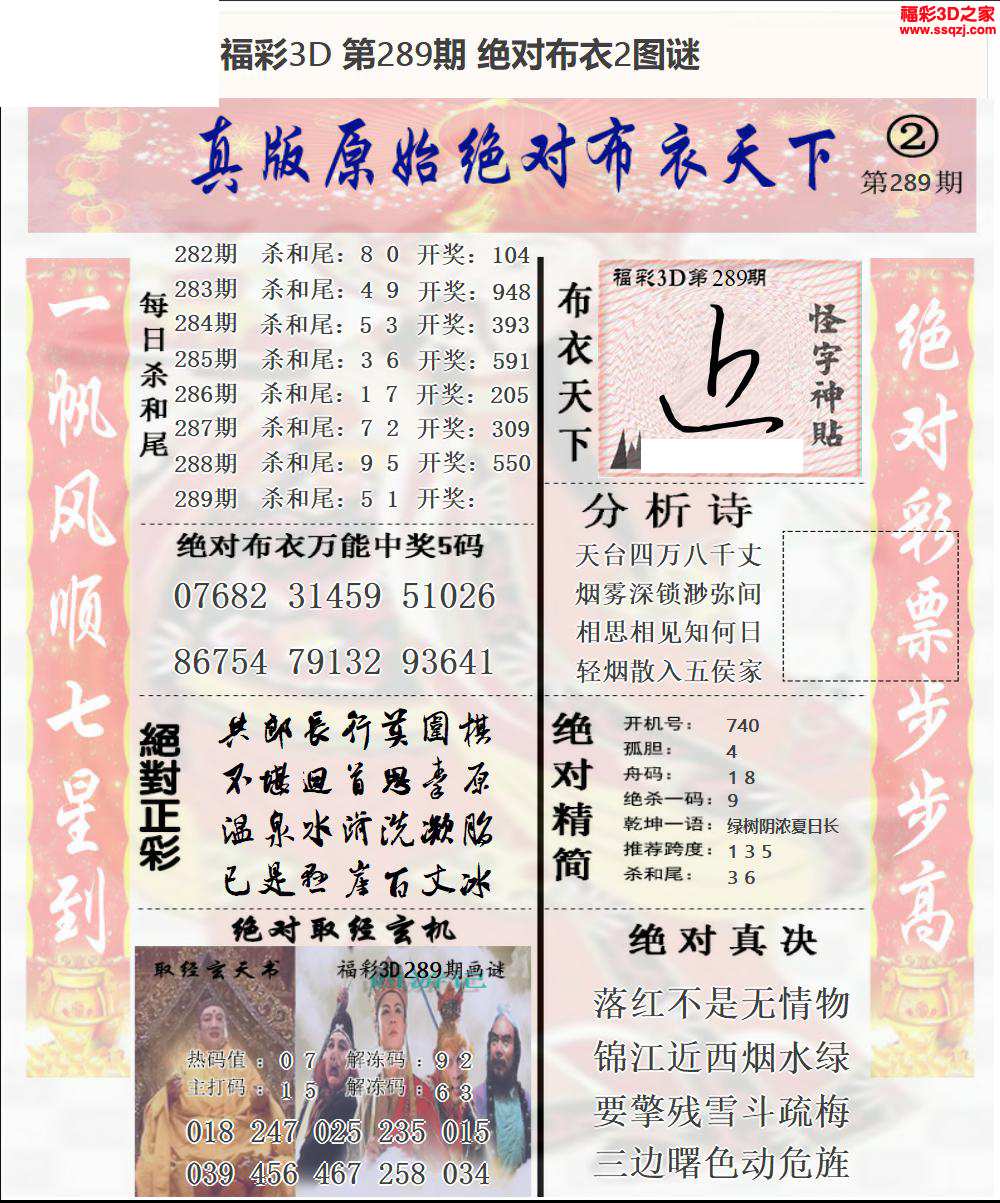 福彩3D之家
www.ssqzj.com
福彩3D 第289期 绝对布衣2图谜
真版原始绝对布衣天下
②
第289期
一帆风顺七星到
每日杀和尾
282期 杀和尾：8 0 开奖：104
283期 杀和尾：4 9 开奖：948
284期 杀和尾：5 3 开奖：393
285期 杀和尾：3 6 开奖：591
286期 杀和尾：1 7 开奖：205
287期 杀和尾：7 2 开奖：309
288期 杀和尾：9 5 开奖：550
289期 杀和尾：5 1 开奖：
绝对布衣万能中奖5码
07682 31459 51026
86754 79132 93641
絕對正彩
共郎长行莫围棋
不堪回首思李原
温泉水滑洗凝脂
已是悬崖百丈冰
绝对取经玄机
取经玄天书
福彩3D289期画谜
热码值：0 7 解冻码：9 2
主打码：1 5 解冻码：6 3
018 247 025 235 015
039 456 467 258 034
布衣天下
福彩3D第289期
怪字神貼
分析诗
天台四万八千丈
烟雾深锁渺弥间
相思相见知何日
轻烟散入五侯家
绝对精简
开机号：740
孤胆：4
舟码：1 8
绝杀一码：9
乾坤一语：绿树阴浓夏日长
推荐跨度：1 3 5
杀和尾：3 6
绝对真决
落红不是无情物
锦江近西烟水绿
要擎残雪斗疏梅
三边曙色动危旌
绝对彩票步步高